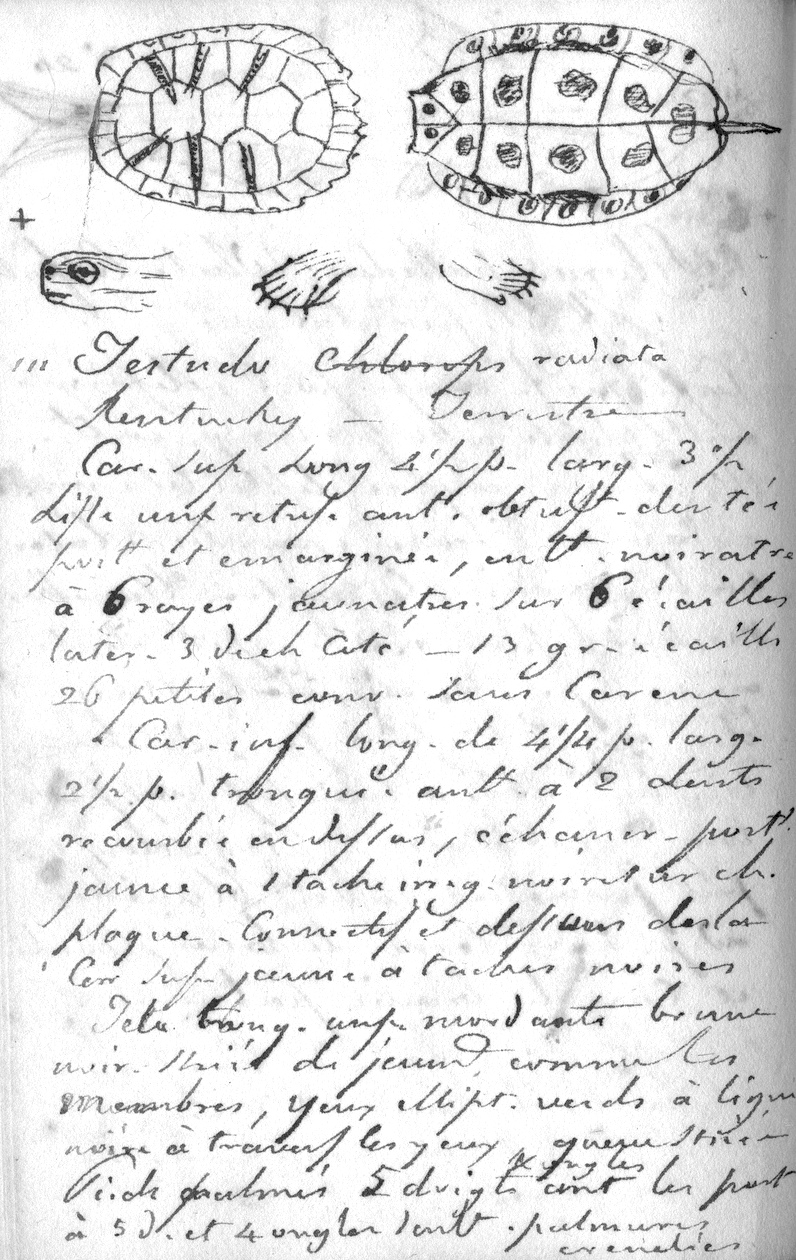 Testudo Chlorops radiata
Kentucky — Terrestre
Car. sup. Long 4½ p. larg. 3½
antr. obtuse dentée
postt et emarginée, noiratre
à 6 rayes jaunatres sur 6 écailles
later. 3 de ch côté — 13 gr. écaills
26 petites conv. sans Carene
Car. inf. long. de 4¼ p. larg.
2½ p. tronquée antt à 2 dents
recourbée en dessus, échancr. postt
jaune à 1 tache irreg. noire sur ch.
plaque. Connectif et dessous de la
Car sup jaune à taches noires
Tete brune
noir. striée de jaune comme les
Membres, yeux ellipt. verds à ligne
noire à travers les yeux, queue striée
x ongles
Pieds palmés 5 doigts ant les post
à 5 d. et 4 ongles palmures
crenelées